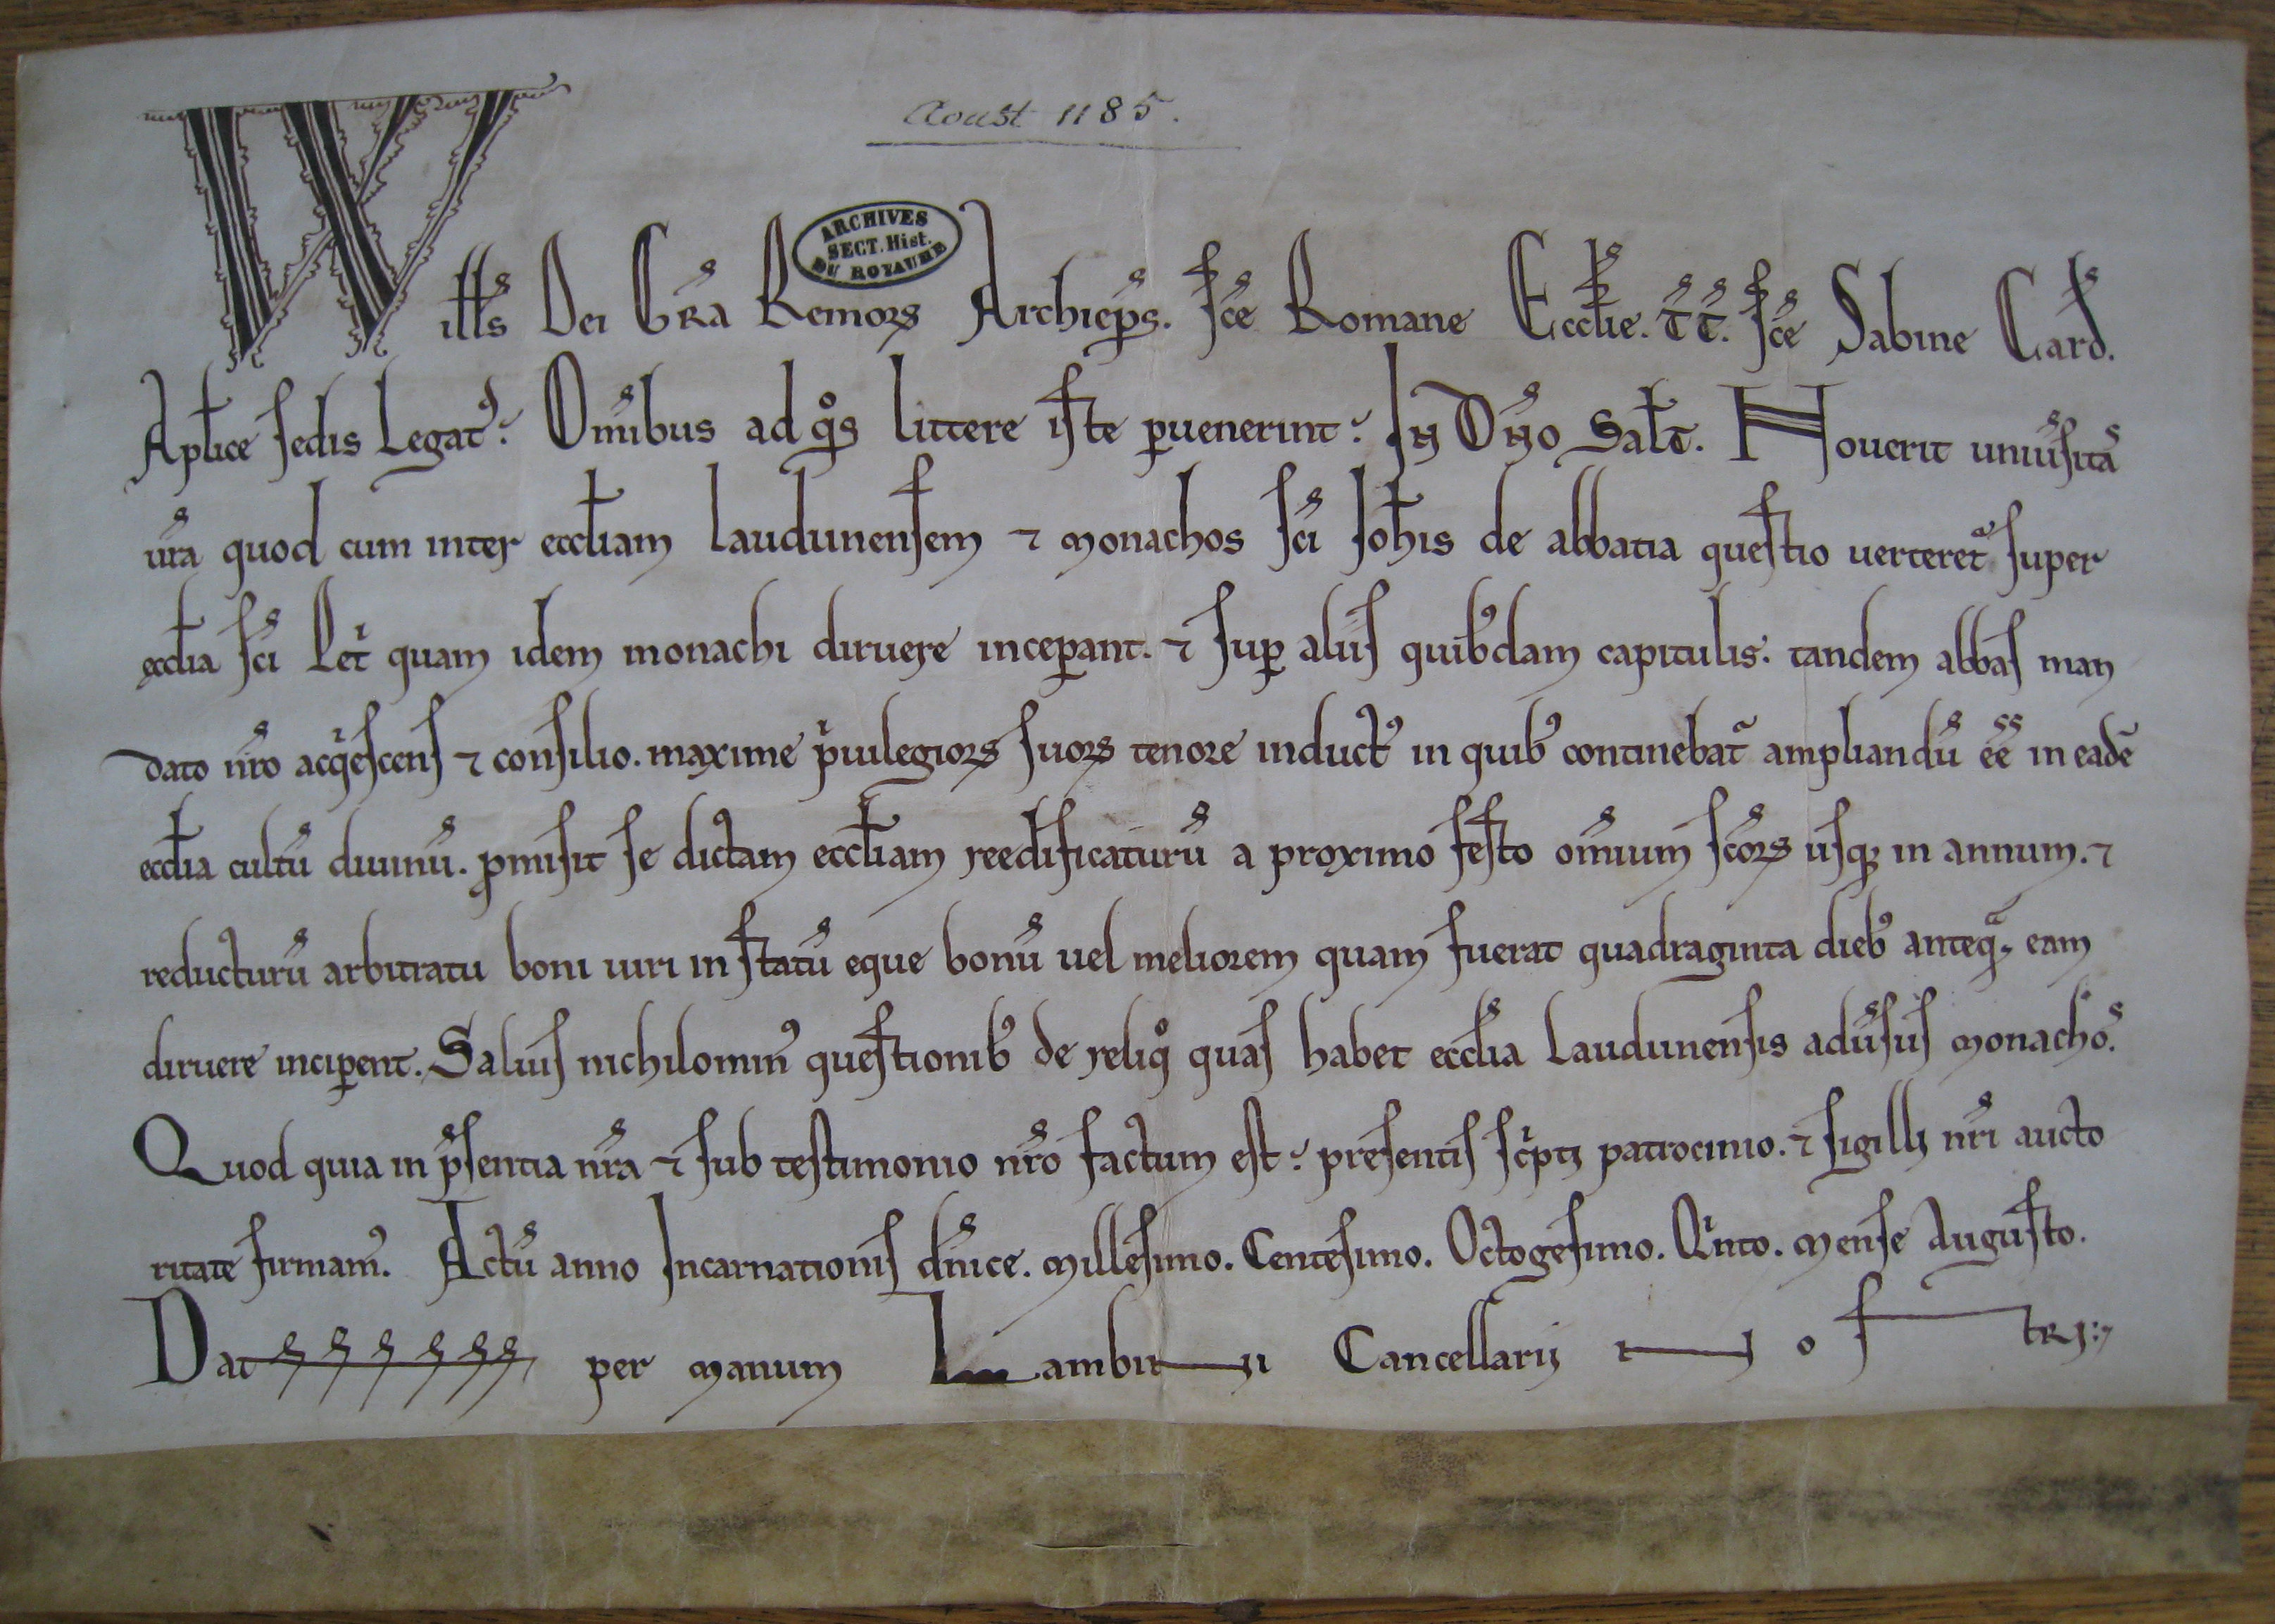 Aoust 1185.
ARCHIVES
SECT. Hist.
DU ROYAUME
Wills Dei Gra Remorꝝ Archieps. Sce Romane Ecclie. tt. Sce Sabine Card.
Aplice sedis Legatꝰ. Omibus ad qͦs littere iste ꝑuenerint. In Dno Salt. Nouerit uniuſitas
ura quod cum inter eccliam laudunenſem ⁊ monachos ſci Iohis de abbatia queſtio uerteret ſuper
ecclia ſci Petͥ quam idem monachi diruere inceꝑant. ⁊ ſuꝑ aliis quibꝰdam capitulis. tandem abbaſ man
dato nro acqͥeſcenſ ⁊ conſilio. maxime pͥuilegiorꝝ ſuorꝝ tenore inductꝰ in quibꝰ continebat ampliandū ēē in eadē
ecclia cultū diuinū. ꝓmiſit ſe dictam eccliam reedificaturū a proximo feſto omium ſcorꝝ uſqꝫ in annum. ⁊
reducturū arbitratu boni uiri in ſtatū eque bonū uel meliorem quam fuerat quadraginta diebꝰ anteqͣ eam
diruere inciꝑent. Saluiſ nichilominꝰ queſtionibꝰ de reliqͦ quaſ habet ecclia Laudunenſis aduſuſ monachoſ.
Quod quia in pſentia nra ⁊ ſub teſtimonio nro factum eſt. preſentiſ ſcͥpti patrocinio. ⁊ ſigilli nri aucto
ritate firmamꝰ. Actū anno Incarnationiſ dnice. Milleſimo. Centeſimo. Octogeſimo. Qͥnto. Menſe Auguſto.
Dat per manum Lambini Cancellarij noſtri